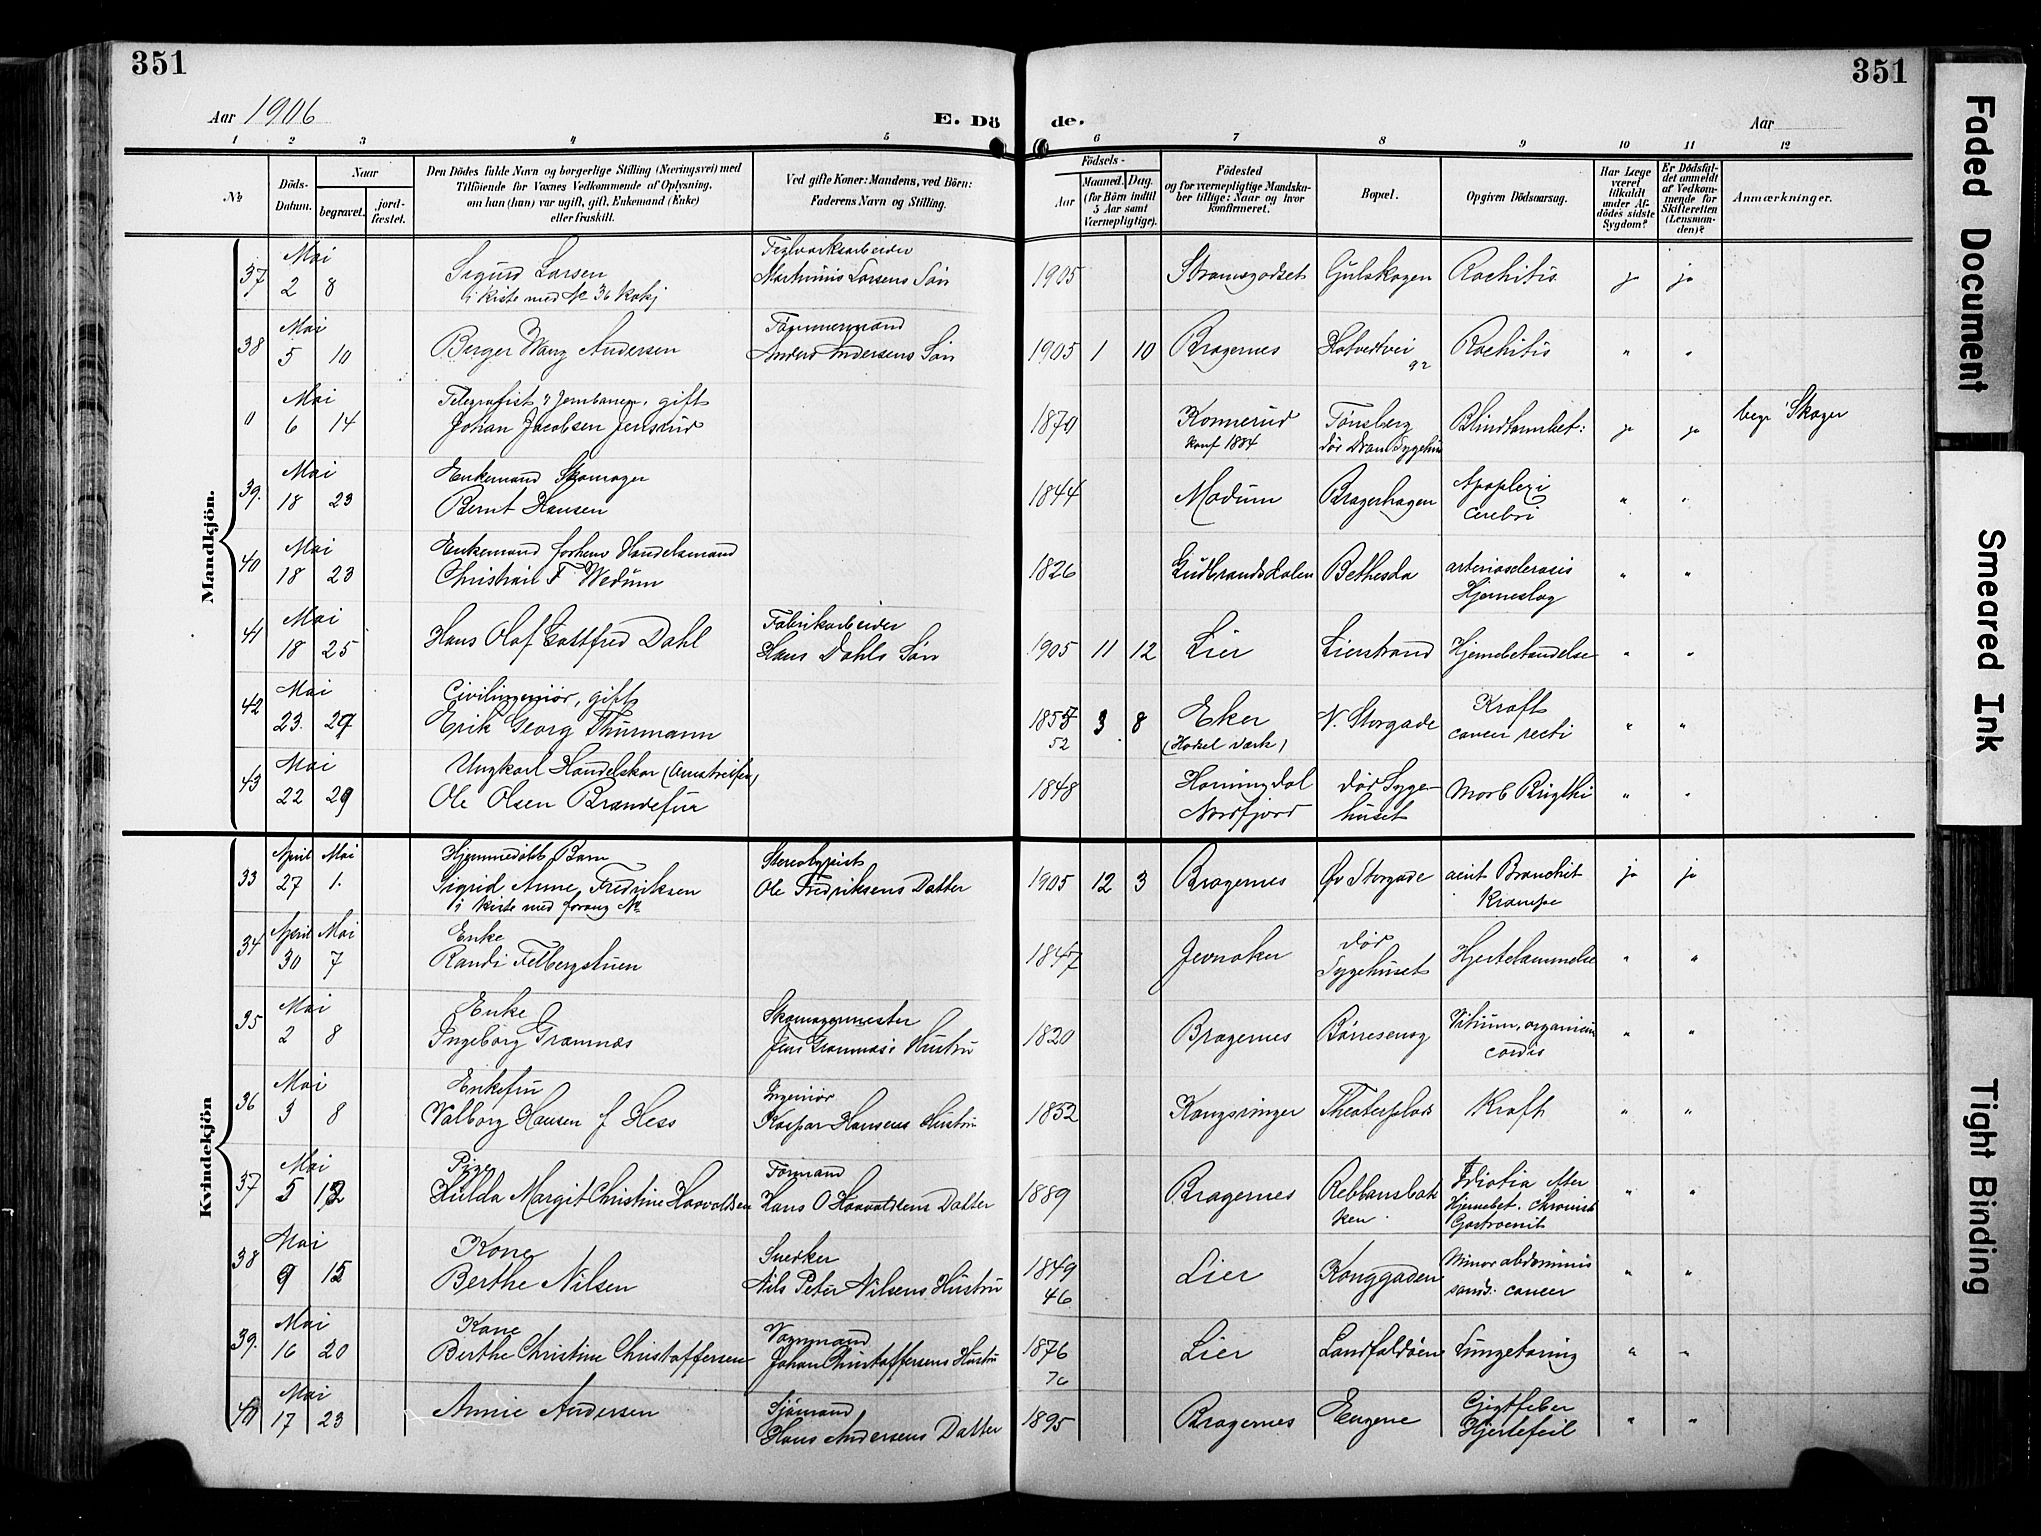 351
351
Aar 1906
E. Dö de.
Aar
1 2 3 4 5 6 7 8 9 10 11 12
No
Döds-Datum.
Naar
begravet.
jord-fæstet.
Den Dödes fulde Navn og borgerlige Stilling (Næringsvei) med
Tilföiende for Voxnes Vedkommende af Oplysning,
om han (hun) var ugift, gift, Enkemand (Enke)
eller fraskilt.
Ved gifte Koner: Mandens, ved Börn:
Faderens Navn og Stilling.
Födsels-
Aar
Maaned. Dag.
(for Börn indtil
5 Aar samt
Værnepligtige).
Födested
og for værnepligtige Mandska-
ber tillige: Naar og hvor
konfirmeret.
Bopæl.
Opgiven Dödsaarsag.
Har Læge
været
tilkaldt
under Af-
dödes sidste
Sygdom?
Er Dödsfal-
det anmeldt
af Vedkom-
mende for
Skifteretten
(Lensman-
den)?
Anmærkninger.
Mandkjön.
37 Mai 2 8 Sigurd Larsen
i kiste med No 36
Teglverksarbeider
Martinius Larsens Søn
1905 Strømsgodset Gulskogen Rachitis ja ja
38 Mai 5 10 Birger Wang Andersen
Tømmermand
Anders Andersens Søn
1905 1 10 Bragernes Hotvedtvei 92 Rachitis " "
0 Mai 6 14 Telegrafist v Jernbanen, gift
Johan Jacobsen Jensrud
1870 Konnerud
konf 1884
Tønsberg
dør Dram Sygehus
Blindtarmbet: ja ja begr Skoger
39. Mai 18 23 Enkemand Skomager
Bernt Hansen
1844 Modum Bragerhagen Apoplexi
cerebri " "
40 Mai 18 23 Enkemand forhenv Handelsmand
Christian F Wedum
1826 Gudbrandsdalen Bethesda arteriosclerosis
Hjerneslag " "
41 Mai 18 25 Hans Olaf Gottfred Dahl
Fabrikarbeider
Hans Dahls Søn
1905 11 12 Lier Lierstrand Hjernebetændelse " "
42 Mai 23. 29 Civilingeniør, gift
Erik Georg Thurmann
1857
52
3 8 Eker
(Hassel værk)
N. Storgade Kræft
cancer recti " "
43 Mai 22 29 Ungkarl Handelskar
Ole Olsen Brandefur
1848 Horningdal
Nordfjord
dør Syge-
huset
Morb Brigthi " "
Kvindekjön
33 April 27 Mai 1. Hjemmedøbt Barn
Sigrid Anne Fredriksen
i kiste med forang No
Stereotypist
Ole Fredriksens Datter
1905 12 3 Bragernes Øv Storgade acut Bronchit
Krampe ja ja
34 April 30 Mai 7 Enke
Randi Felbergstuen
1847 Jevnaker dør
Sygehuset
Hjertelammelse " "
35 Mai 2 8 Enke
Ingeborg Gramnæs
Skomagermester
Jens Gramnæs's Hustru
1820 Bragernes Børresensg Vitium, organicum
cordis " "
36 Mai 3 8 Enkefru
Valborg Hansen f Hess
Ingeniør
Kaspar Hansens Hustru
1852 Kongsvinger Theaterplads Kræft " "
37 Mai 5 12 Pige
Hulda Margit Christine Haavaldsen
Formand
Hans O Haavaldsens Datter
1889 Bragernes Rebbansbak
ken
Idiotia efter
Hjernebet. Chronisk
Gastroenit " "
38 Mai 9 15 Kone
Berthe Nilsen
Snedker
Nils Peter Nilsens Hustru
1849
46
Lier Konggaden abdominis
cancer " "
39. Mai 16 20 Kone
Berthe Christine Christoffersen
Vognmand
Johan Christoffersens Hustru
1876
76
Lier Landfaldøen Lungetæring " "
40 Mai 17 23 Annie Andersen
Sjømand
Hans Andersens Datter
1895 Bragernes Eugene Gigtfeber
Hjertefeil " "
Faded Document
Smeared Ink
Tight Binding